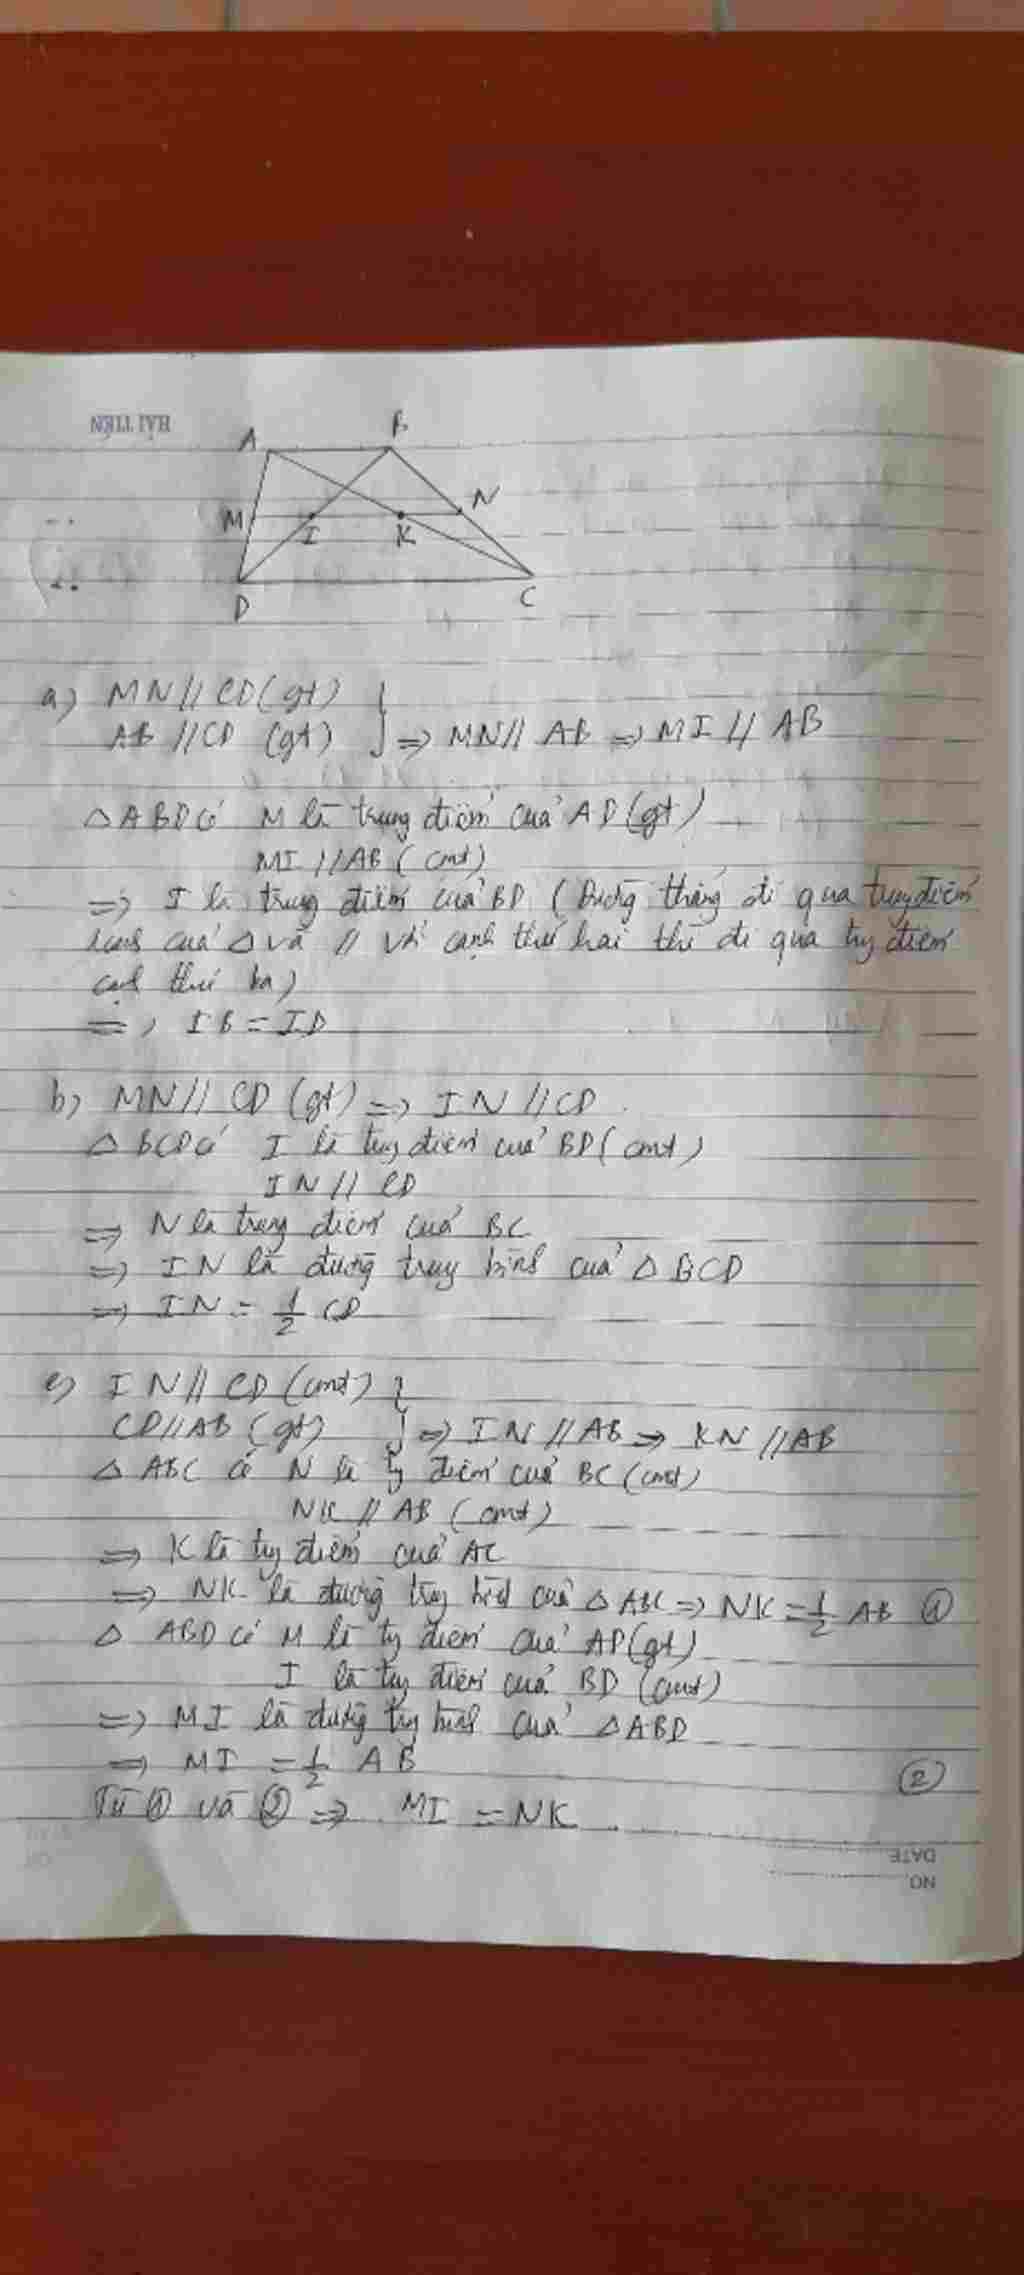 HẢI TIẾN
A B
M I K N
D C
a) MN // CD (gt)
AB // CD (gt) } => MN // AB => MI // AB
△ABD có M là trung điểm của AD (gt)
MI // AB (cmt)
=> I là trung điểm của BD (Đường thẳng đi qua trung điểm
1 cạnh của △ và // với cạnh thứ hai thì đi qua tr điểm
cạnh thứ ba)
=> IB = ID
b) MN // CD (gt) => IN // CD
△BCD có I là trg điểm của BD (cmt)
IN // CD
=> N là trung điểm của BC
=> IN là đường trung bình của △BCD
=> IN = 1/2 CD
c) IN // CD (cmt)
CD // AB (gt) } => IN // AB => KN // AB
△ABC có N là tr điểm của BC (cmt)
NK // AB (cmt)
=> K là trg điểm của AC
=> NK là đường trg bình của △ABC => NK = 1/2 AB ①
△ABD có M là trg điểm của AD (gt)
I là trg điểm của BD (cmt)
=> MI là đường trg bình của △ABD
=> MI = 1/2 AB ②
Từ ① và ② => MI = NK
DATE
NO